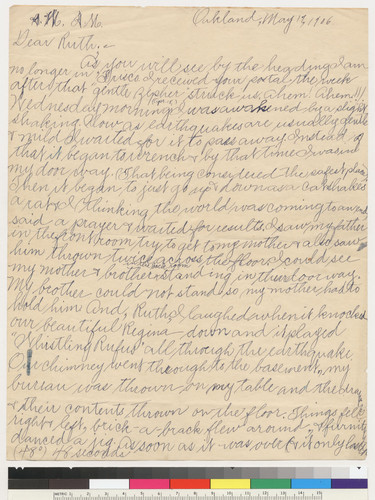 A.W. A.M.
Oakland, May 17, 1906
Dear Ruth:-
As you will see by the heading I am
no longer in 'Frisco. I received your postal the week
after that gentle zephyr struck us. Ahem! Ahem!!
Wednesday morning I was awakened by a slight
shaking. Now as earthquakes are usually gentle
& mild I waited for it to pass away. Instead of
that it began to wrench & by that time I was in
my door way. That being considered the safest place
Then it began to just go up & down as a cat shakes
a rat & I thinking the world was coming to an end
said a prayer & waited for results. I saw my father
in the front room try to get to my mother & also saw
him thrown twice across the floor. I could see
my mother & brother standing in their door way.
My brother could not stand so my mother had to
hold him. And, Ruth, I laughed when it knocked
our beautiful Regina down and it played
"Whistling Rufus" all through the earthquake.
Our chimney went through to the basement, my
bureau was thrown on my table and the drawers
& their contents thrown on the floor. Things fell
right & left, brick-a-brack flew around, & furniture
danced a jig. As soon as it was over (& it only lasted
48 seconds